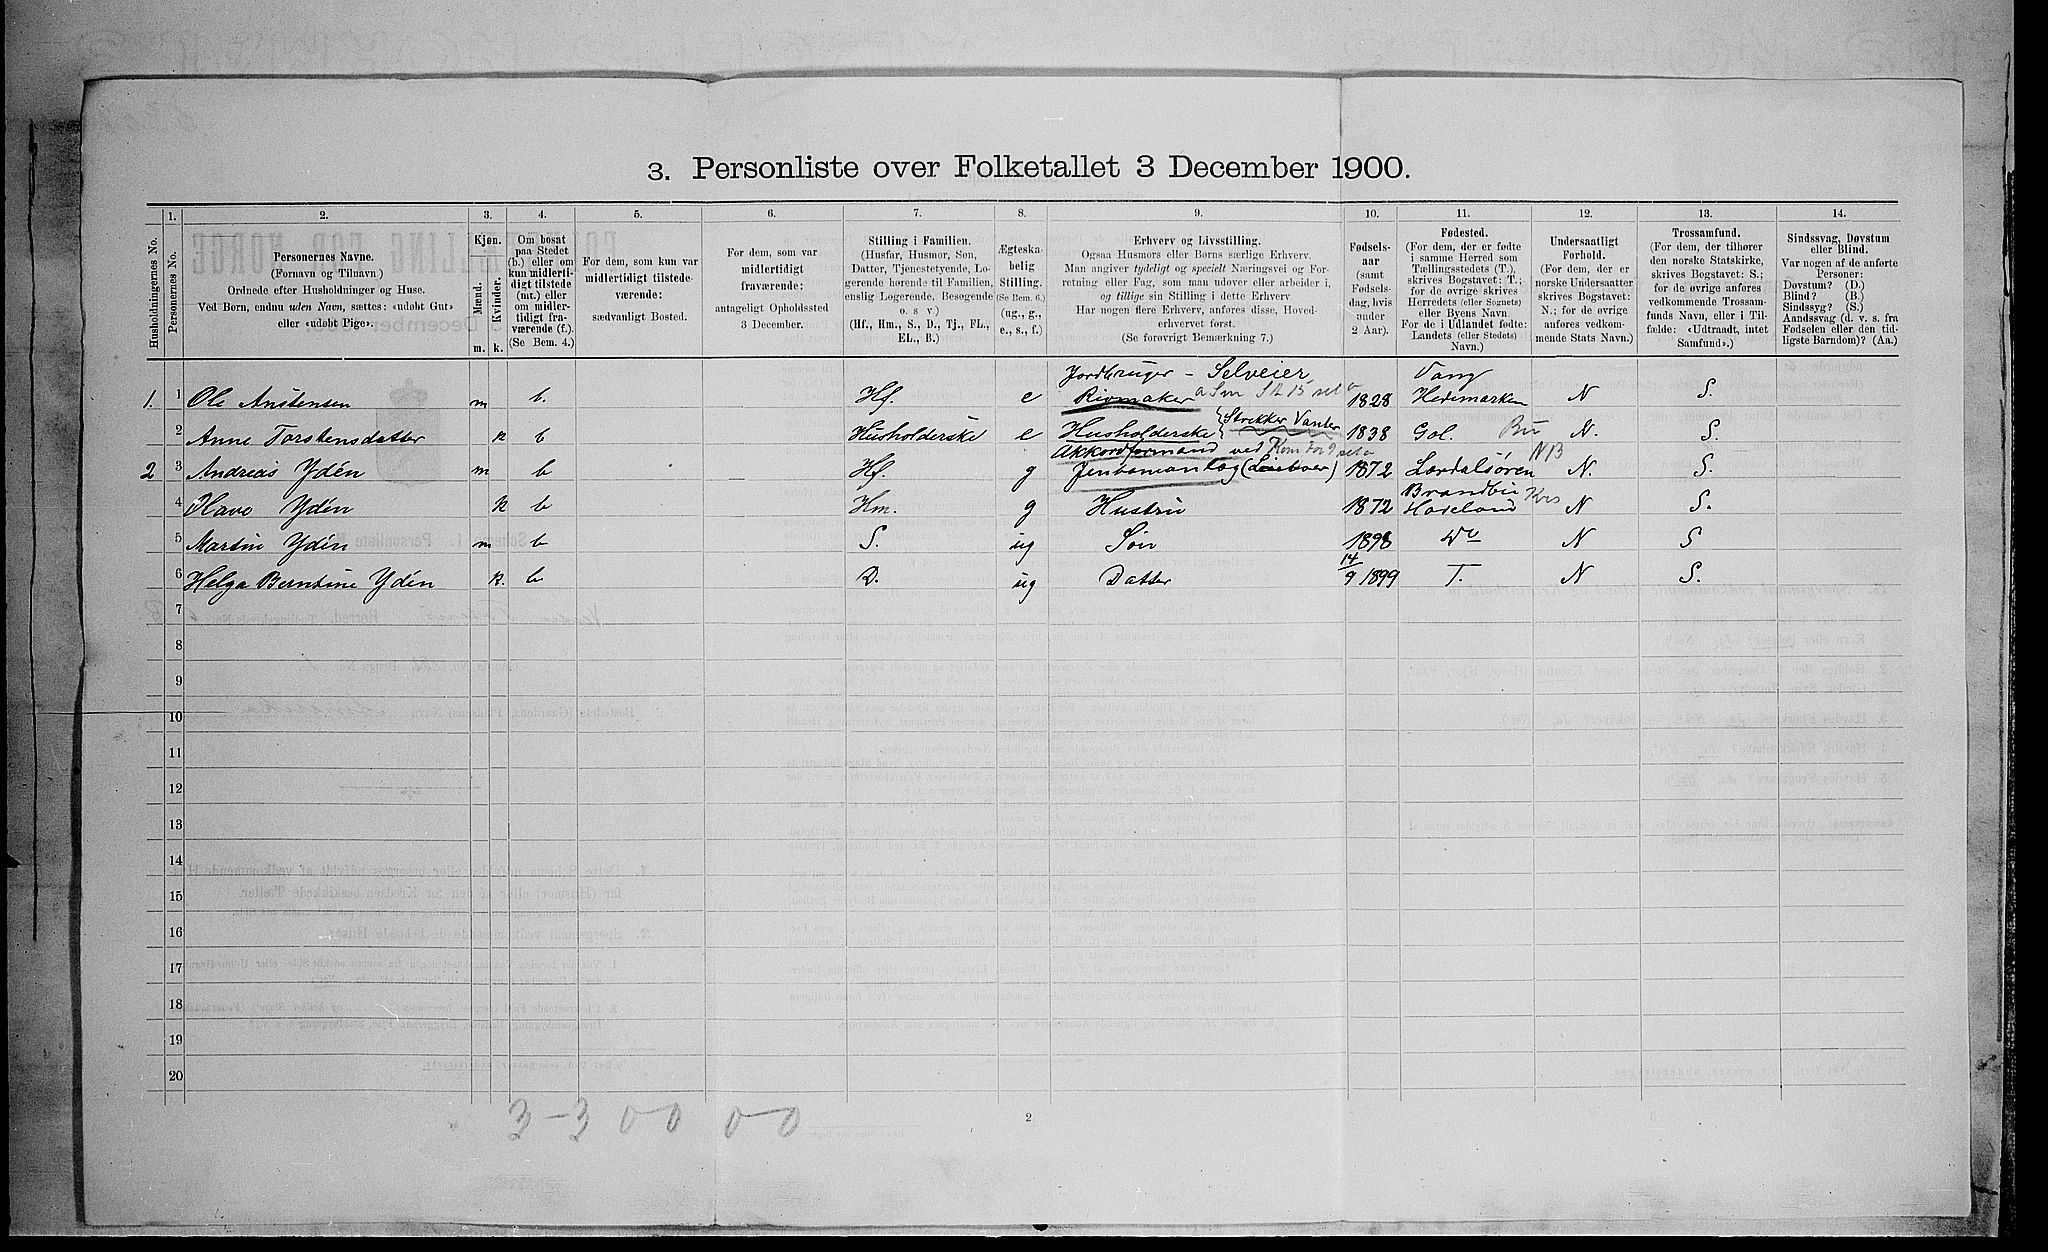 3. Personliste over Folketallet 3 December 1900.
Husholdningernes No.
1.
Personernes No.
2.
Personernes Navne.
(Fornavn og Tilnavn.)
Ordnede efter Husholdninger og Huse.
Ved Børn, endnu uden Navn, sættes: «udøbt Gut»
eller «udøbt Pige».
3.
Kjøn.
Mænd.
Kvinder.
m.
k.
4.
Om bosat
paa Stedet
(b.) eller om
kun midlerti-
digt tilstede
(mt.) eller
om midler-
tidigt fra-
værende (f.).
(Se Bem. 4.)
5.
For dem, som kun var
midlertidigt tilstede-
værende:
sædvanligt Bosted.
6.
For dem, som var
midlertidigt
fraværende:
antageligt Opholdssted
3 December.
7.
Stilling i Familien.
(Husfar, Husmor, Søn,
Datter, Tjenestetyende, Lo-
gerende hørende til Familien,
enslig Logerende, Besøgende
o. s. v.)
(Hf., Hm., S., D., Tj., FL.,
EL., B.)
8.
Ægteska-
belig
Stilling.
(Se Bem. 6.)
(ug., g.,
e., s., f.)
9.
Erhverv og Livsstilling.
Ogsaa Husmors eller Børns særlige Erhverv.
Man angiver tydeligt og specielt Næringsvei og For-
retning eller Fag, som man udøver eller arbeider i,
og tillige sin Stilling i dette Erhverv.
Har nogen flere Erhverv, anføres disse, Hoved-
erhvervet først.
(Se forøvrigt Bemærkning 7.)
10.
Fødsels-
aar
(samt
Fødsels-
dag, hvis
under
2 Aar).
11.
Fødested.
(For dem, der er fødte
i samme Herred som
Tællingsstedets (T.),
skrives Bogstavet: T.;
for de øvrige skrives
Herredets (eller Sognets)
eller Byens Navn.
For de i Udlandet fødte:
Landets (eller Stedets)
Navn.)
12.
Undersaatligt
Forhold.
(For dem, der er
norske Undersaatter
skrives Bogstavet:
N.; for de øvrige
anføres vedkom-
mende Stats Navn.)
13.
Trossamfund.
(For dem, der tilhører
den norske Statskirke,
skrives Bogstavet: S.;
for de øvrige anføres
vedkommende Trossam-
funds Navn, eller i Til-
fælde: «Udtraadt, intet
Samfund».)
14.
Sindssvag, Døvstum
eller Blind.
Var nogen af de anførte
Personer:
Døvstum? (D.)
Blind? (B.)
Sindssyg? (S.)
Aandssvag (d. v. s. fra
Fødselen eller den tid-
ligste Barndom)? (Aa.)
Jordbruger - Selveier Vang
1. 1 Ole Anstensen m b. Hf. e Rivmaker 1828 Hedemarken N S.
Strekker Vanter
2 Anne Torstensdatter k b Husholderske e Husholderske 1838 Gol. Bu N. S.
Akkordformand ved
2 3 Andreas Ydén m b Hf. g Jenbaneanlæg 1872 Lærdalsøren N13 N. S.
Brandbu
4 Olava Ydén k b Hm. g Hustru 1872 Hadeland Kris N S.
5 Martin Ydén m b S. ug Søn 1898 Do N S
6 Helga Berntine Ydén k. b D. ug Datter 14/9 1899 T. N S.
7
8
9
10
11
12
13
14
15
16
17
18
19
20
3-3 0 0 0 0
2